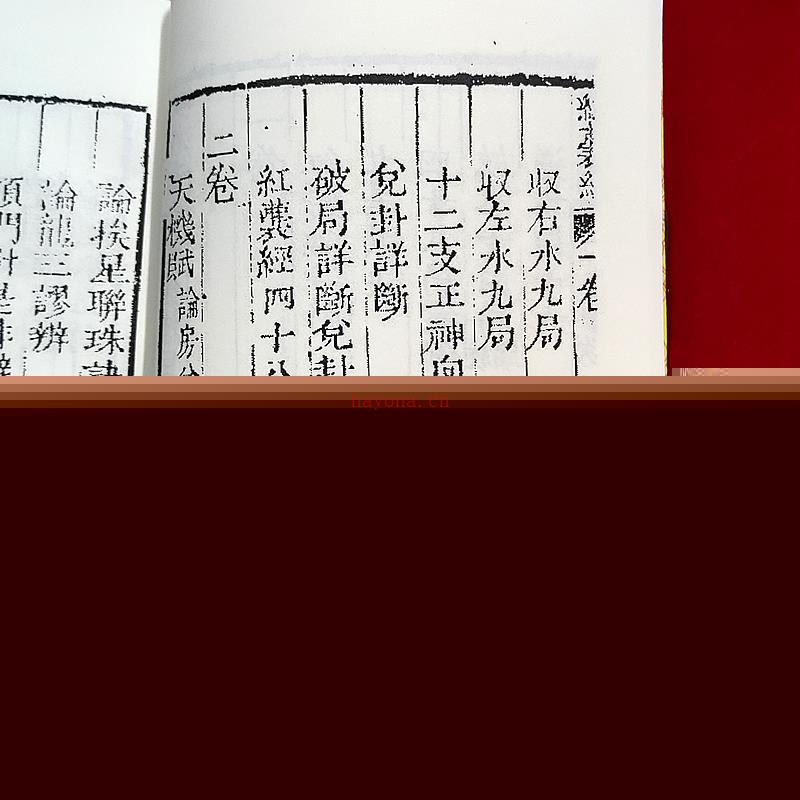 一卷
収右水九局
収左水九局
十二支正神向
兌卦詳斷
破局詳斷兌卦
紅囊經四十八
二卷
天機賦論房分
論挨星聯珠訣
論龍三謬辨
頂門針是非辨
hayona.cn